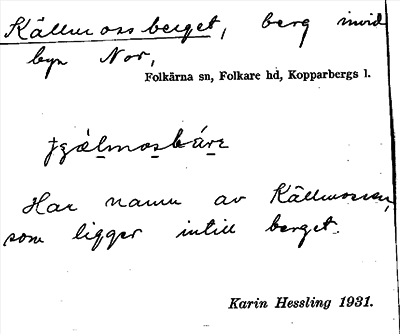 Källmossberget, berg invid
byn Nor,
Folkärna sn, Folkare hd, Kopparbergs l.
Har namn av Källmossen,
som ligger intill berget.
Karin Hessling 1931.